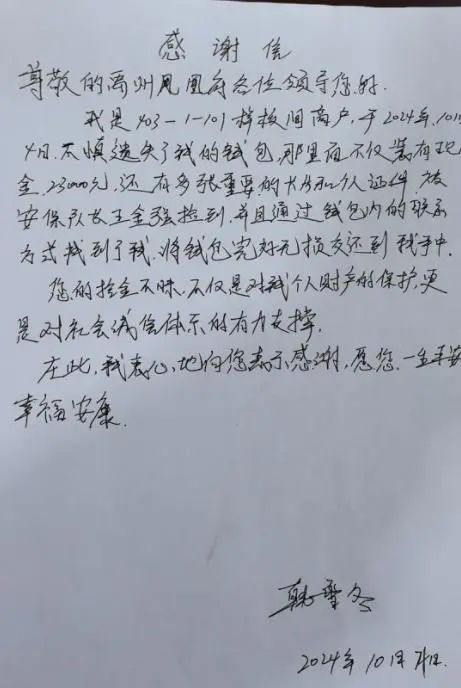 感谢信
尊敬的禹州凤凰府各位领导您好.
我是403-1-101样板间商户,于2024年10月
4日.不慎遗失了我的钱包,那里面不仅装有现
金.23000元,还有多张重要的卡片和个人证件.被
安保队长王金强捡到.并且通过钱包内的联系
方式找到了我.将钱包完好无损交还到我手中.
您的拾金不昧.不仅是对我个人财产的保护,更
是对社会诚信体系的有力支撑.
在此,我衷心,地向您表示感谢,愿您.一生平安
幸福安康.
韩雪冬
2024年10月 日